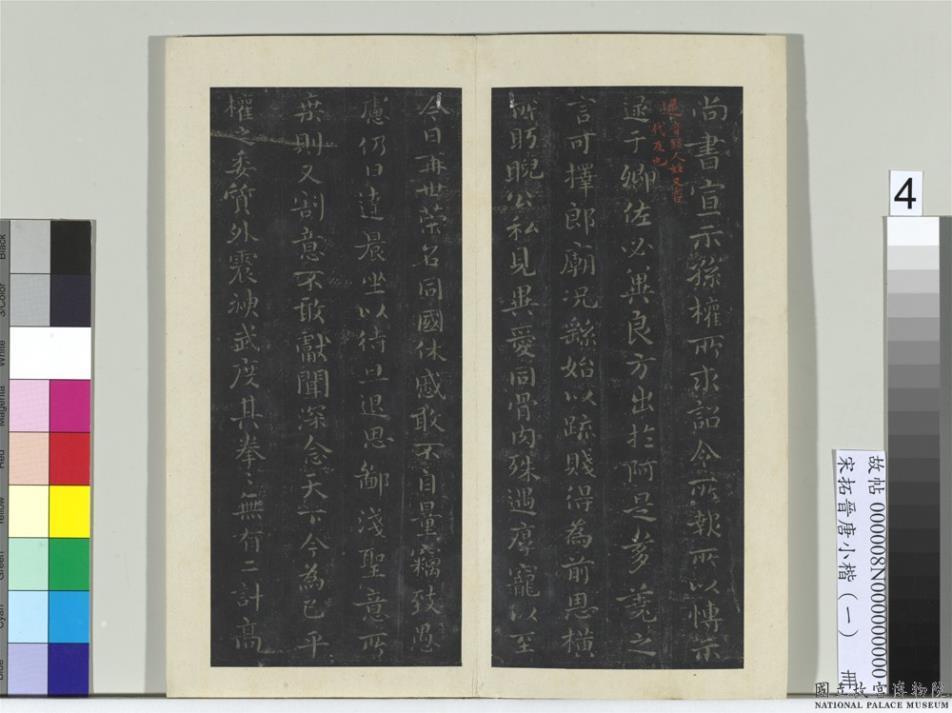 尚書宣示孫權所求詔令所報所以博示
逮于卿佐必冀良方出於阿是芻蕘之
言可擇郎廟況繇始以疏賤得為前恩橫
所盱睨公私見異愛同骨肉殊遇厚寵以至
今日再世榮名同國休慼敢不自量竊致愚
慮仍日達晨坐以待旦退思鄙淺聖意所
棄則又割意不敢獻聞深念天下今為已平
權之委質外震神武度其拳〻無有二計高
4
故帖 000008N000000000
宋拓晉唐小楷(一)
Black
3/Color
White
Magenta
Red
Yellow
Green
Cyan
Blue
國立故宮博物院
NATIONAL PALACE MUSEUM